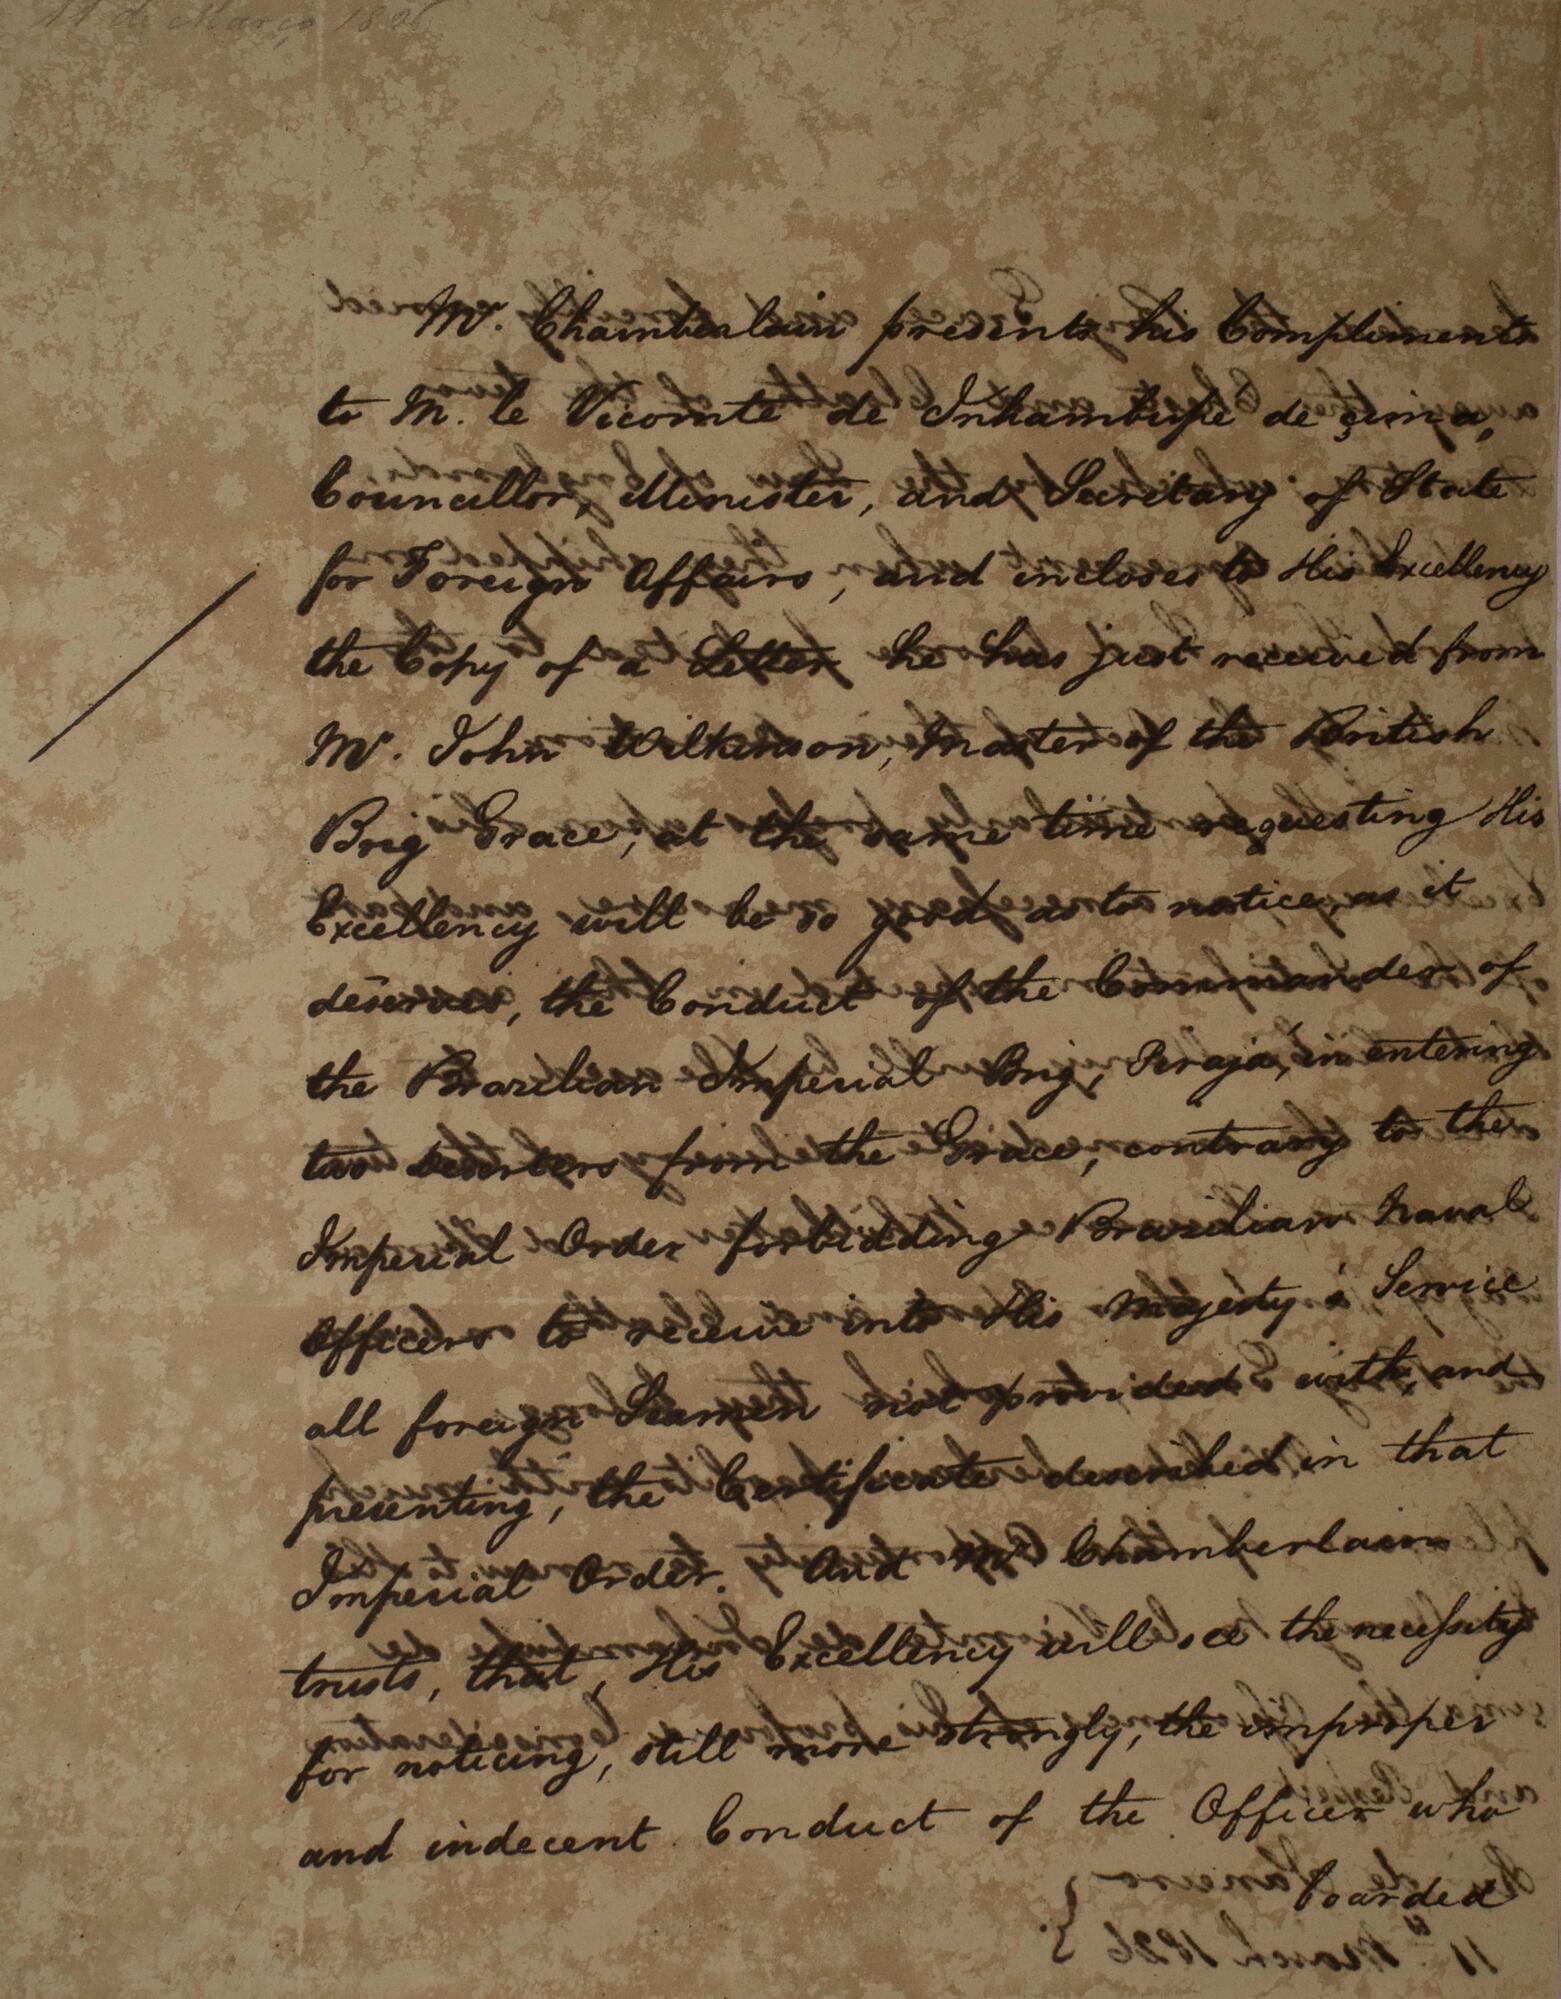 11 de Março 1826
Mr. Chamberlain presents his Compliments
to M. le Vicomte de Inhambupe de çima,
Councillor, Minister, and Secretary of State
for Foreign Affairs, and incloses to His Excellency
the Copy of a Letter he has just received from
Mr. John Wilkinson, Master of the British
Brig Grace, at the same time requesting His
Excellency will be so good as to notice, as it
deserves, the Conduct of the Commander of
the Brazilian Imperial Brig, Piraja, in entering
two deserters from the Grace, contrary to the
Imperial Order forbidding Brazilian Naval
Officers to receive into His Majesty's Service
all foreign Seamen not provided with, and
presenting, the Certificate described in that
Imperial Order. And Mr. Chamberlain
trusts, that, His Excellency will see the necessity
for noticing, still more strongly, the improper
and indecent Conduct of the Officer who
boarded